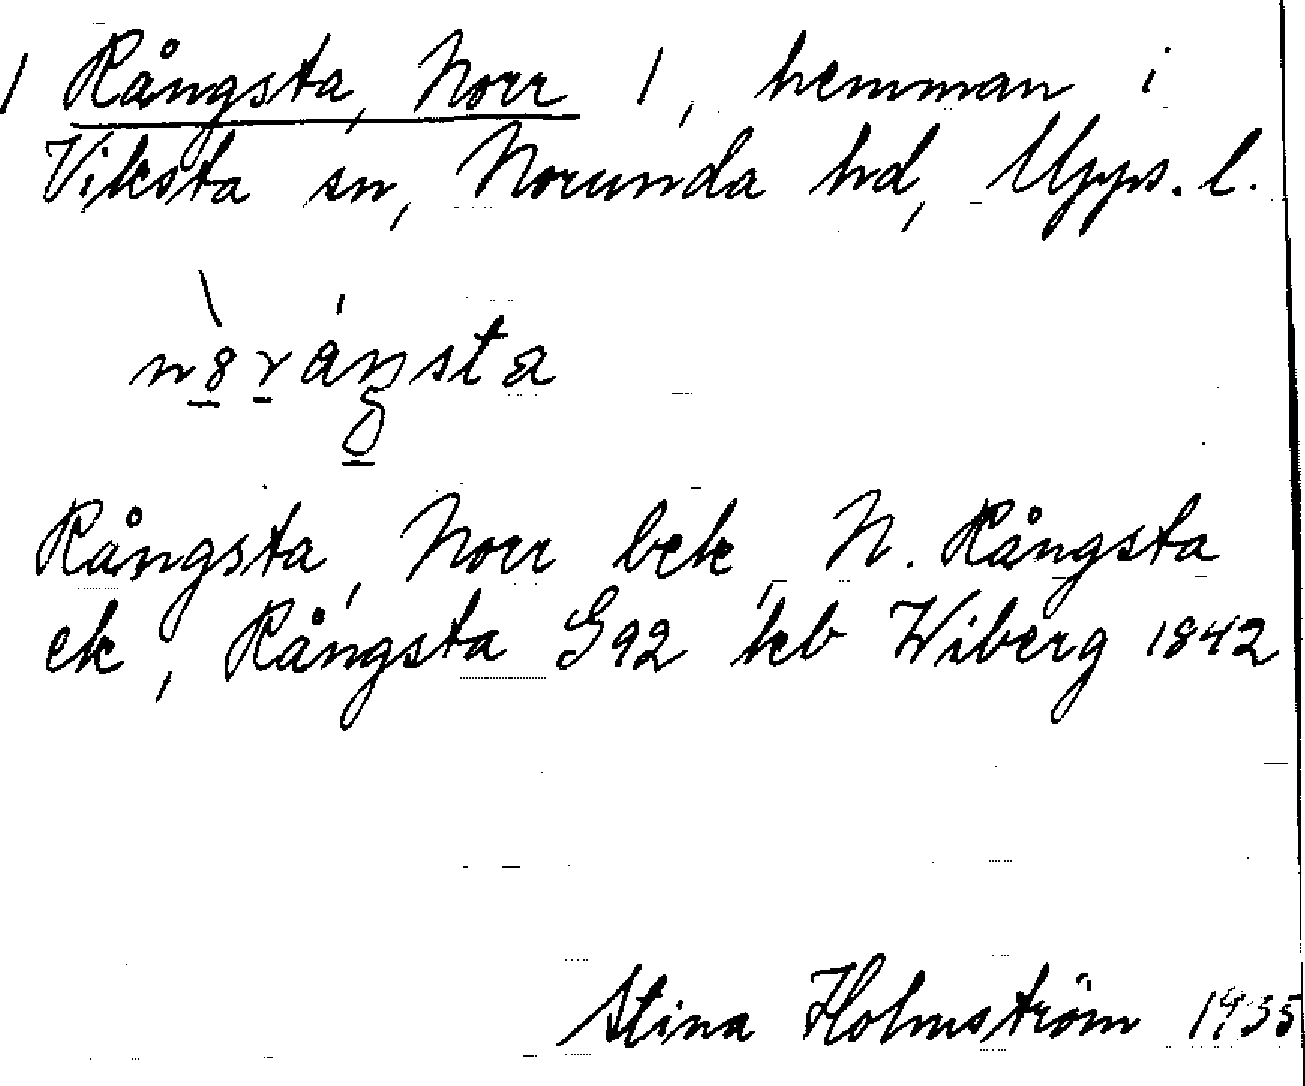 / Rångsta, Norr /, hemman i
Viksta sn, Norunda hd, Upps. l.
n8ráŋsta
Rångsta, Norr bek, N. Rångsta
ek, Rångsta G92 kb Wiberg 1842
Stina Holmström 1935